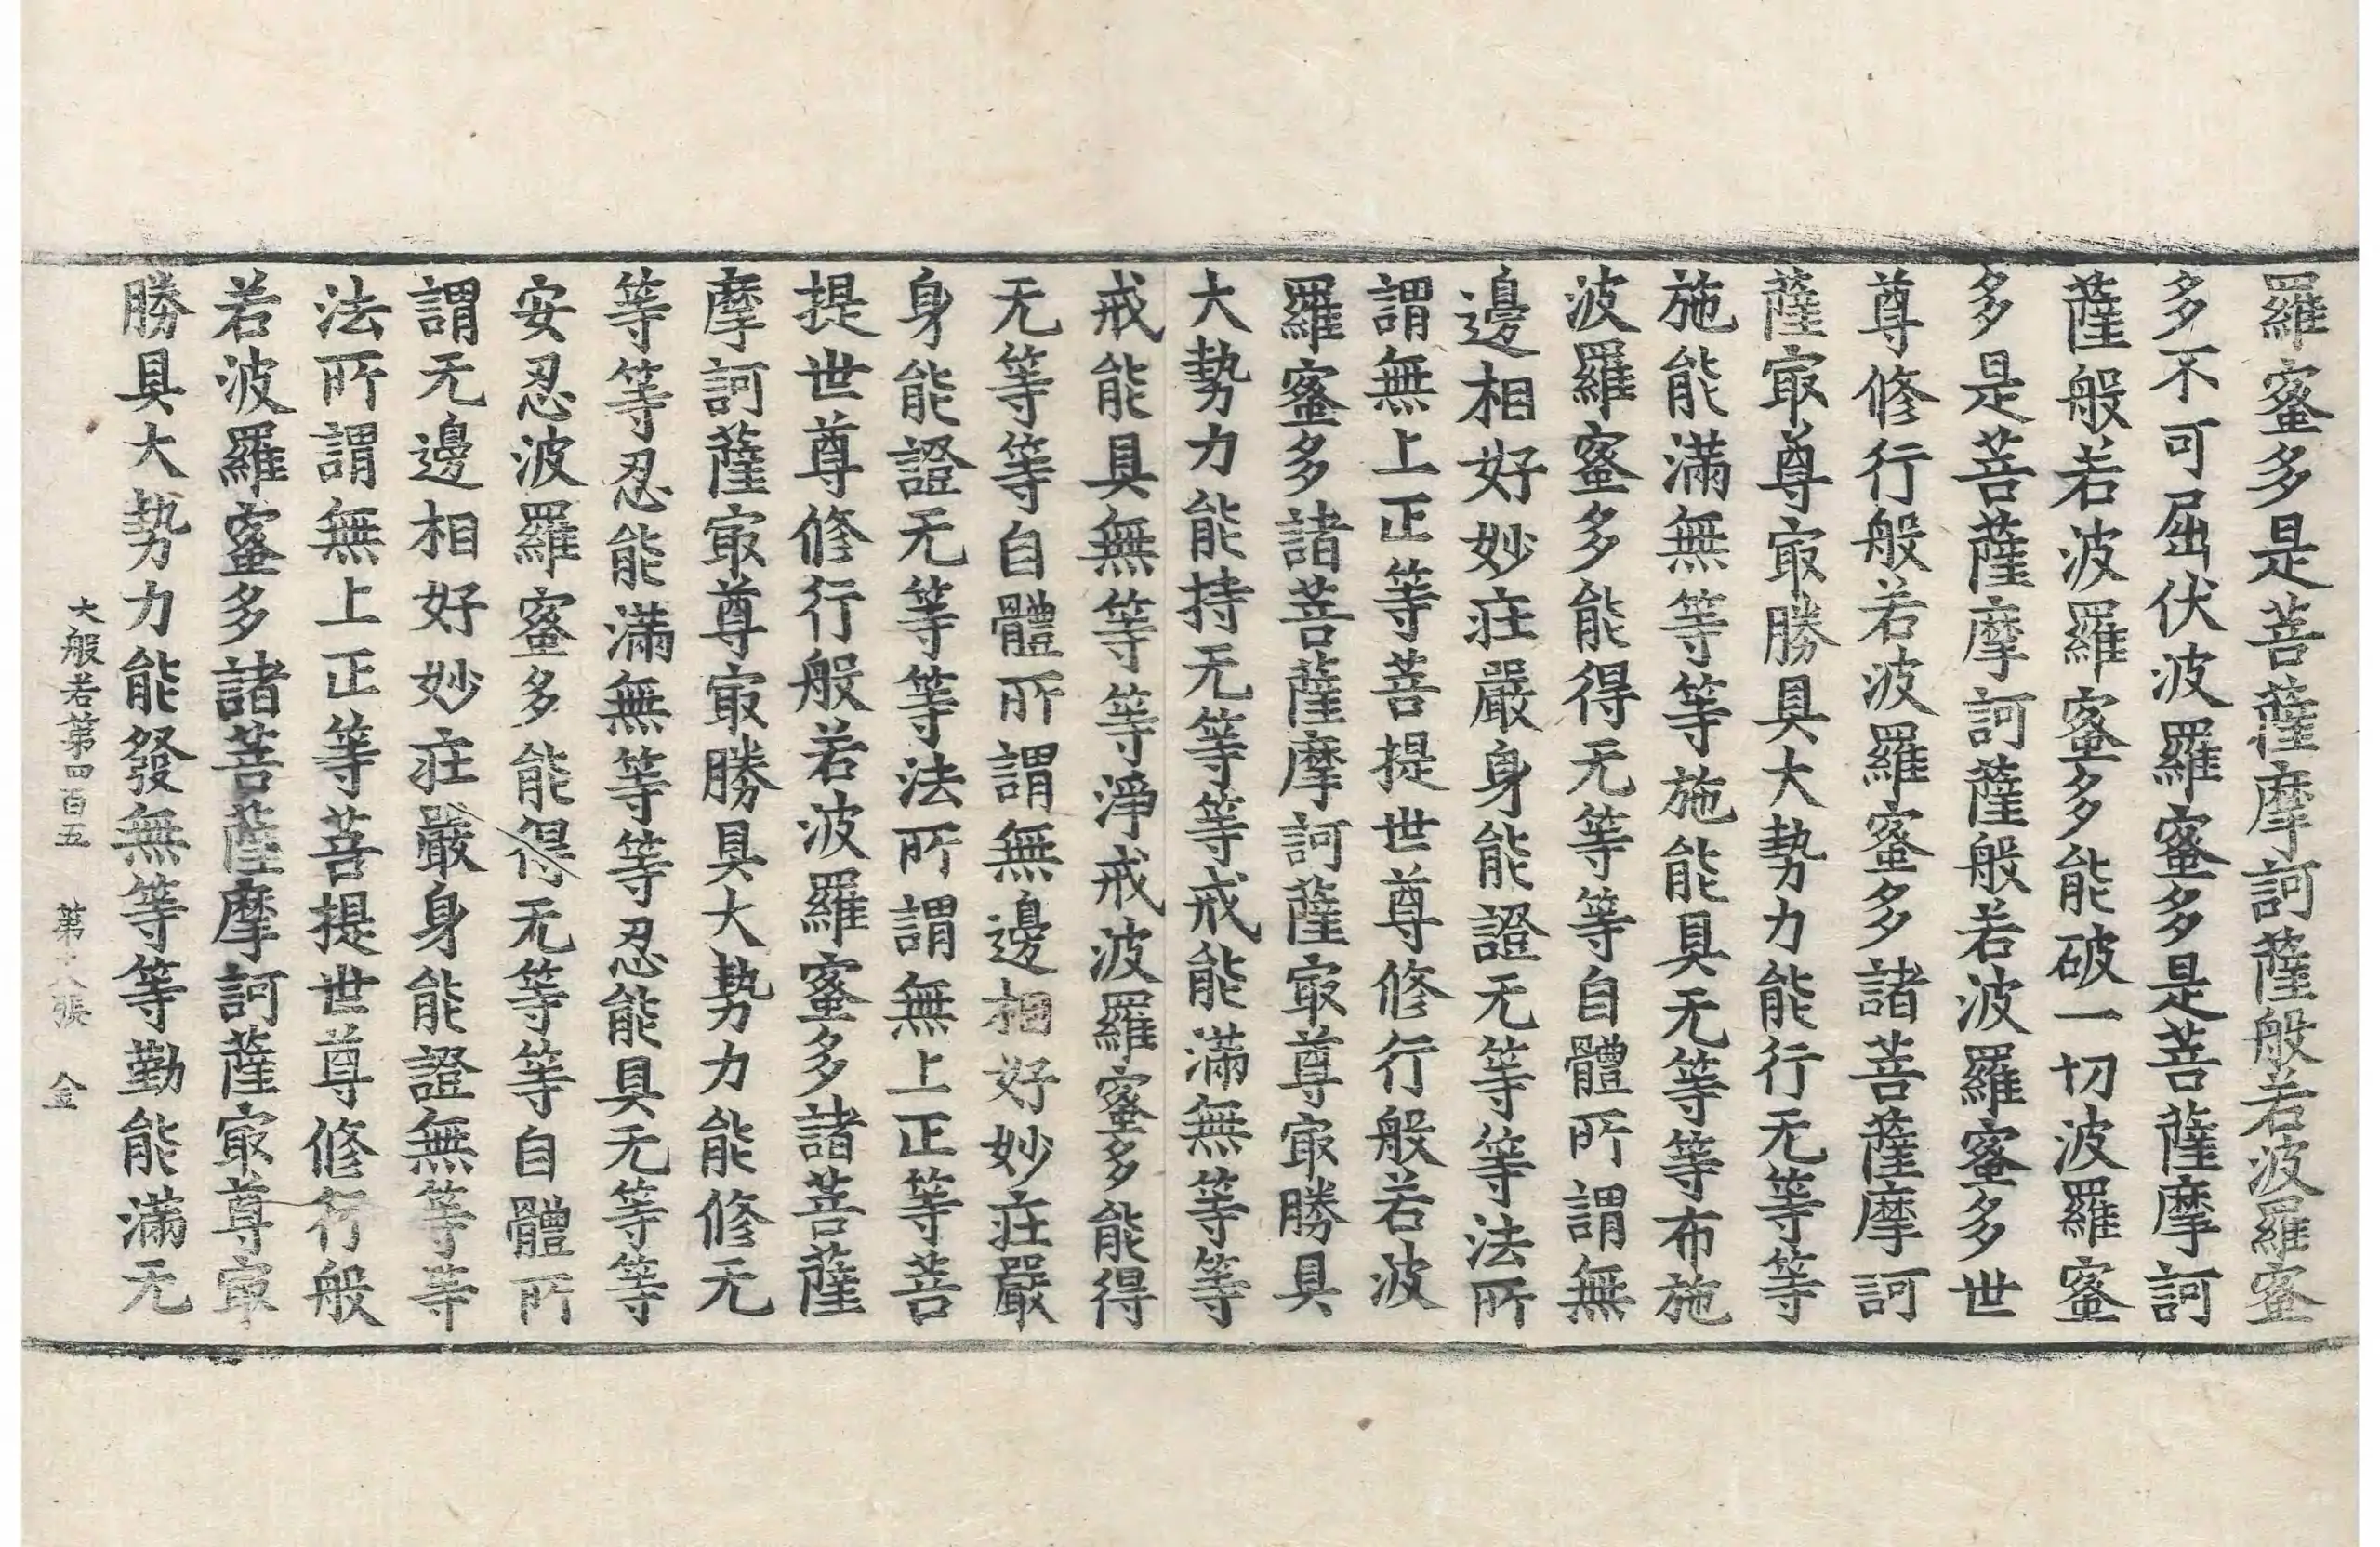 羅蜜多是菩薩摩訶薩般若波羅蜜
多不可屈伏波羅蜜多是菩薩摩訶
薩般若波羅蜜多能破一切波羅蜜
多是菩薩摩訶薩般若波羅蜜多世
尊修行般若波羅蜜多諸菩薩摩訶
薩㝡尊㝡勝具大勢力能行无等等
施能滿無等等施能具无等等布施
波羅蜜多能得无等等自體所謂無
邊相好妙庄嚴身能證无等等法所
謂無上正等菩提世尊修行般若波
羅蜜多諸菩薩摩訶薩㝡尊㝡勝具
大勢力能持无等等戒能滿無等等
戒能具無等等淨戒波羅蜜多能得
无等等自體所謂無邊相好妙庄嚴
身能證无等等法所謂無上正等菩
提世尊修行般若波羅蜜多諸菩薩
摩訶薩㝡尊㝡勝具大勢力能修无
等等忍能滿無等等忍能具无等等
安忍波羅蜜多能得无等等自體所
謂无邊相好妙庄嚴身能證無等等
法所謂無上正等菩提世尊修行般
若波羅蜜多諸菩薩摩訶薩㝡尊㝡
勝具大勢力能發無等等勤能滿无
大般若第四百五 第十八張 金